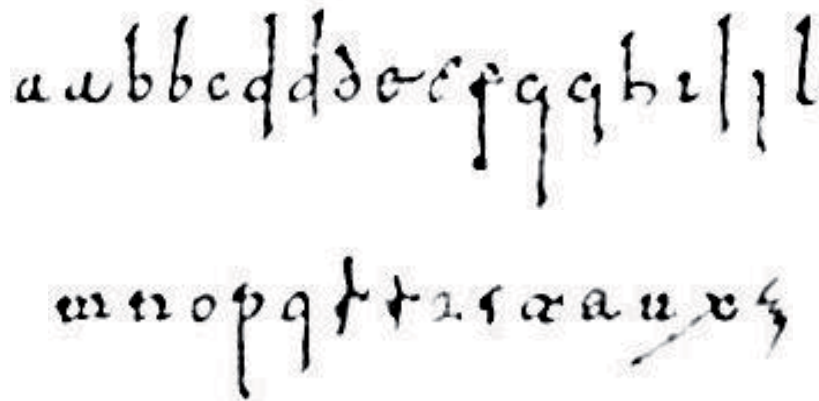 a a b b c d d d e e f g g h i l l l
m n o p q r r r s t a u x z